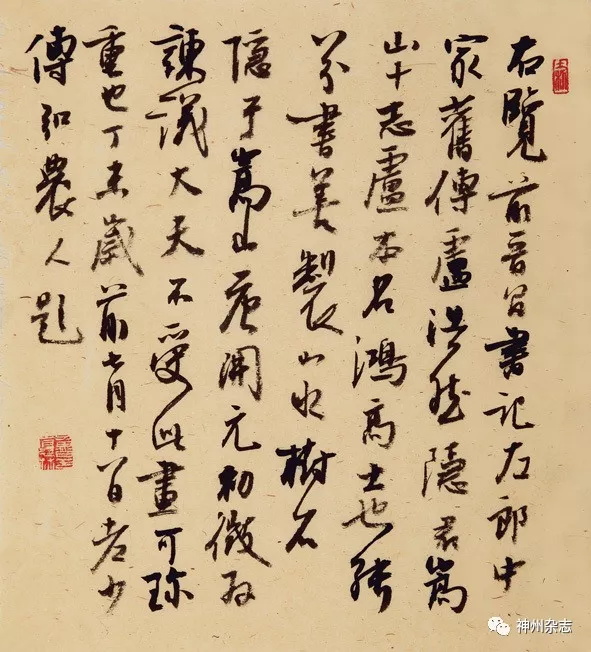 右覽前晉昌書記左郎中
家舊傳盧浩然隱君嵩
山十志盧本名鴻高士也能
八分書善製山水樹石
隱于嵩山唐開元初徵為
諫議大夫不受此畫可珎
重也丁未歲前七月十八日老少
傅弘農人題
神州杂志